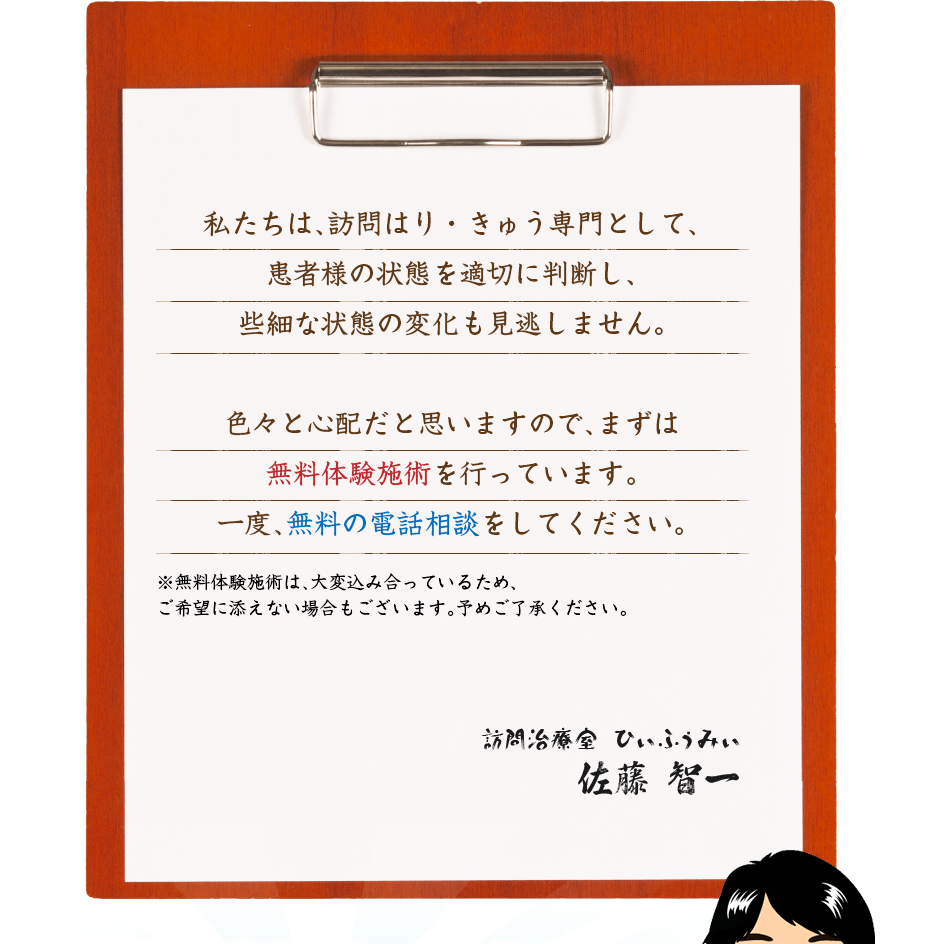 私たちは、訪問はり・きゅう専門として、
患者様の状態を適切に判断し、
些細な状態の変化も見逃しません。
色々と心配だと思いますので、まずは
無料体験施術を行っています。
一度、無料の電話相談をしてください。
※無料体験施術は、大変込み合っているため、
ご希望に添えない場合もございます。予めご了承ください。
訪問治療室 ひぃふぅみぃ
佐藤 智一